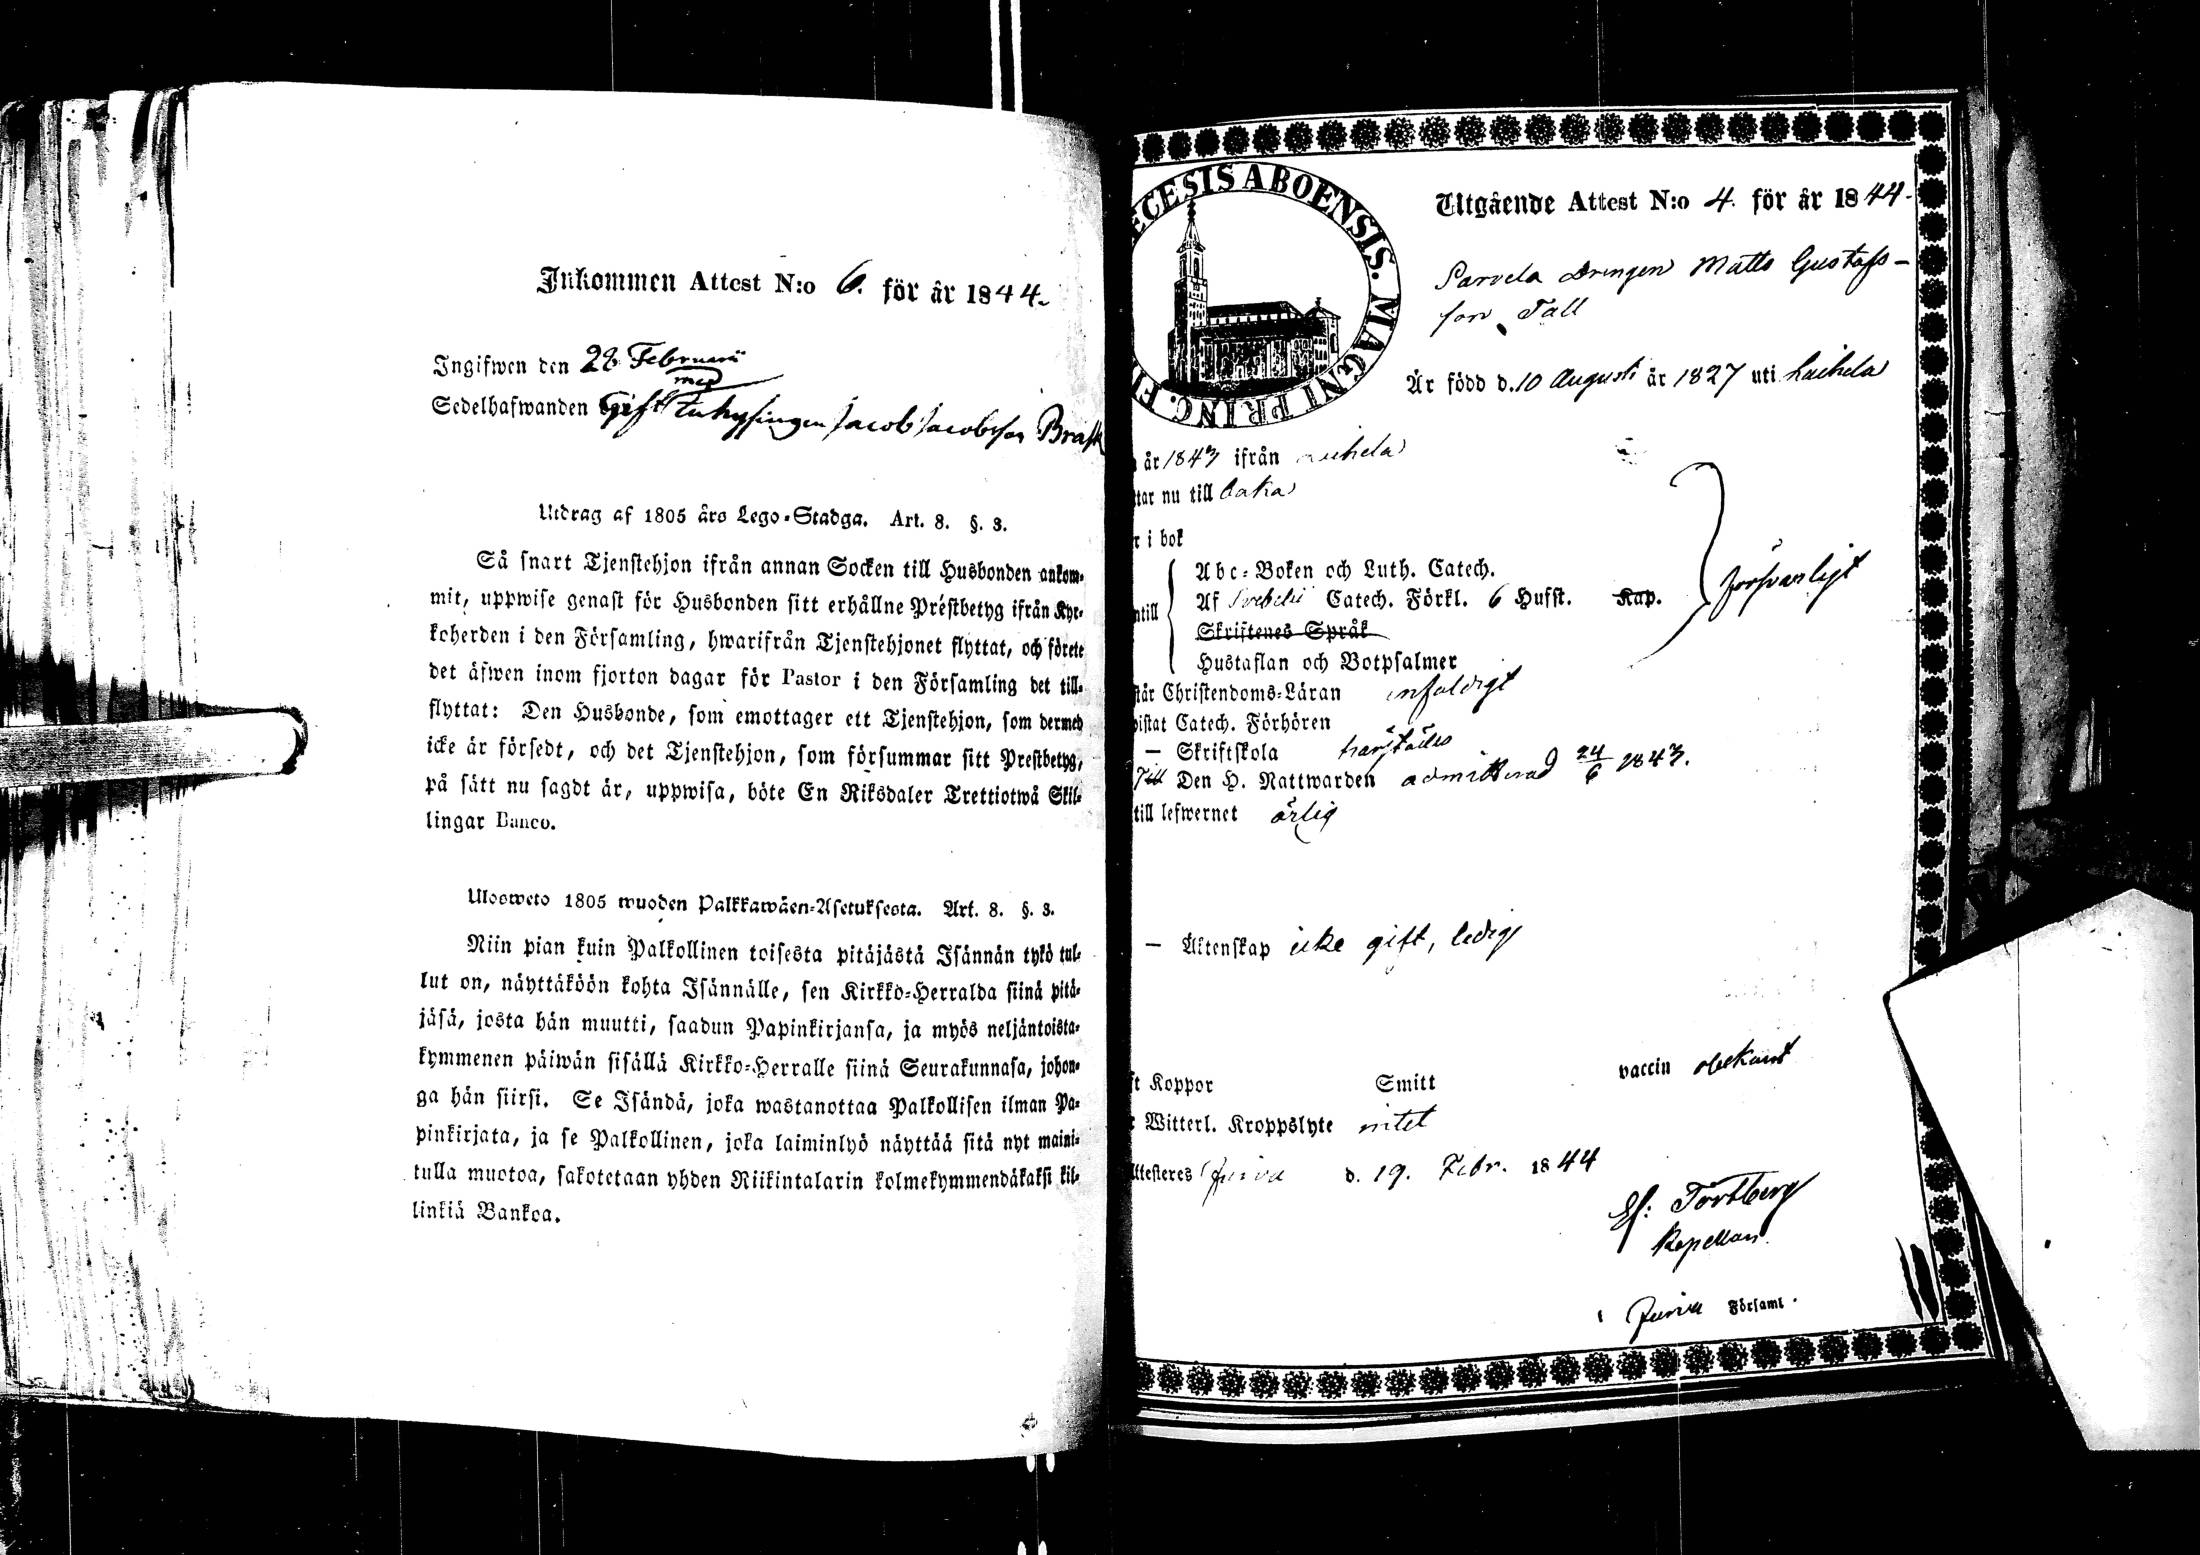 Inkommen Attest N:o 6. för år 1844.
Ingifwen den 28 Februarii
med
Sedelhafwanden Gift Inhysingen Jacob Jacobsson Brask
Utdrag af 1805 års Lego-Stadga. Art. 8. §. 3.
Så snart Tjenstehjon ifrån annan Socken till Husbonden ankom-
mit, uppwise genast för Husbonden sitt erhållne Prestbetyg ifrån Kyr-
koherden i den Församling, hwarifrån Tjenstehjonet flyttat, och förete
det äfwen inom fjorton dagar för Pastor i den Församling det till-
flyttat: Den Husbonde, som emottager ett Tjenstehjon, som dermed
icke är försedt, och det Tjenstehjon, som försummar sitt Prestbetyg,
på sätt nu sagdt är, uppwisa, böte En Riksdaler Trettiotwå Skil-
lingar Banco.
Ulosweto 1805 wuoden Palkkawäen-Asetuksesta. Art. 8. §. 3.
Niin pian kuin Palkollinen toisesta pitäjästä Isännän tykö tul-
lut on, näyttäköön kohta Isännälle, sen Kirkko-Herralda siinä pitä-
jäsä, josta hän muutti, saadun Papinkirjansa, ja myös neljäntoista-
kymmenen päiwän sisällä Kirkko-Herralle siinä Seurakunnasa, johon-
ga hän siirsi. Se Isändä, joka wastanottaa Palkollisen ilman Pa-
pinkirjata, ja se Palkollinen, joka laiminlyö näyttää sitä nyt maini-
tulla muotoa, sakotetaan yhden Riikintalarin kolmekymmendäkaksi kil-
linkiä Bankoa.
ECESIS ABOENSIS. MAGNI PRINC. FI
Utgående Attest N:o 4. för år 1844.
Sarvela Drengen Matts Gustafs-
son Tall
Är född d. 10 Augusti år 1827 uti Laihela
år 1843 ifrån Laihela
tar nu till baka
r i bok
Abc-Boken och Luth. Catech.
ntill Af Svebelii Catech. Förkl. 6 Hufst. Kap. försvarligt
Skriftenes Språk
Hustaflan och Botpsalmer
står Christendoms-Läran enfaldigt
vistat Catech. Förhören
— Skriftskola härstädes
Till Den H. Nattwarden admitterad 24/6 1843.
till lefwernet ärlig
— Äktenskap icke gift, ledig
ft Koppor Smitt vaccin obekant
r Witterl. Kroppslyte intet
Attesteres Jurva d. 19. Febr. 1844
Törtberg
Kapellan.
i Jurva Församl.